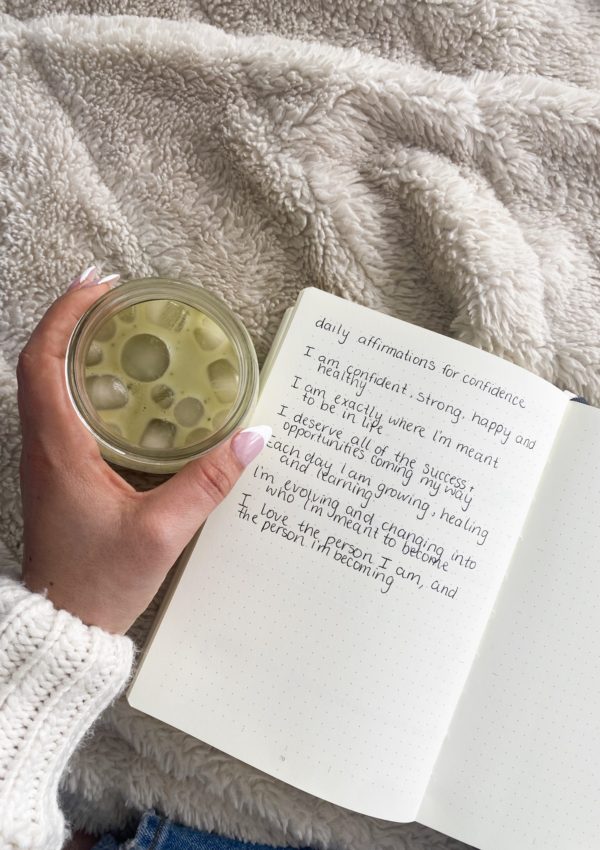 daily affirmations for confidence
I am confident, strong, happy and
healthy
I am exactly where I'm meant
to be in life
I deserve all of the success +
opportunities coming my way
Each day I am growing, healing
and learning
I'm evolving and changing into
who I'm meant to become
I love the person I am, and
the person i'm becoming